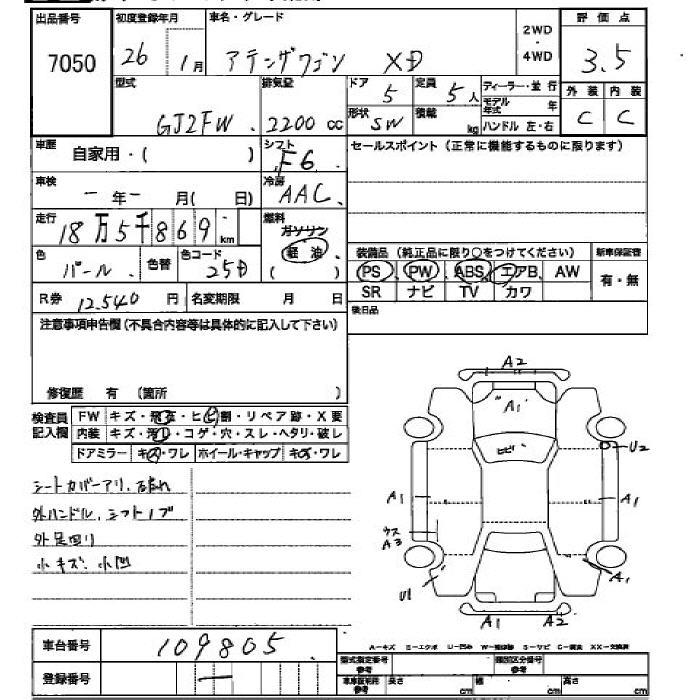 出品番号
7050
初度登録年月
26 1月
車名・グレード
アテンザワゴン XD
2WD
・
4WD
評価点
3.5
型式
GJ2FW
排気量
2200 cc
ドア
5
定員
5人
ディーラー・並行
モデル年式 年
ハンドル 左・右
形状
SW
積載
kg
外装 内装
C C
車歴
自家用・( )
シフト
F6
セールスポイント (正常に機能するものに限ります)
車検
一年一月( 日)
冷房
AAC
走行
18万5千869 km
燃料
ガソリン
軽油
( )
色
パール
色替
色コード
25D
装備品 (純正品に限り○をつけてください)
新車保証書
PS PW ABS エアB AW
有・無
SR ナビ TV カワ
R券 12,540 円
名変期限 月 日
後日品
注意事項申告欄(不具合内容等は具体的に記入して下さい)
修復歴 有 (箇所 )
検査員
記入欄
FW キズ・飛石・ヒビ割・リペア跡・X要
内装 キズ・汚れ・コゲ・穴・スレ・ヘタリ・破レ
ドアミラー キズ・ワレ ホイール・キャップ キズ・ワレ
シートカバーアリ
外ハンドル、シフトノブ
外足回り
小キズ、小凹
A2
A1
ヒビ
U2
A1
A1
ウス
A3
U1
A1
A1
A2
車台番号
109805
登録番号
一
型式指定番号
参考
類別区分番号
参考
車庫証明用
参考
長さ cm 幅 cm 高さ cm